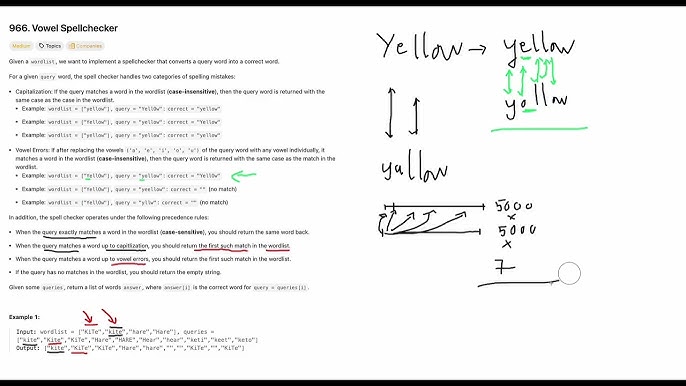 966. Vowel Spellchecker
Medium Topics Companies
Given a wordlist, we want to implement a spellchecker that converts a query word into a correct word.
For a given query word, the spell checker handles two categories of spelling mistakes:
• Capitalization: If the query matches a word in the wordlist (case-insensitive), then the query word is returned with the
same case as the case in the wordlist.
• Example: wordlist = ["yellow"], query = "YellOw": correct = "yellow"
• Example: wordlist = ["Yellow"], query = "yellow": correct = "Yellow"
• Example: wordlist = ["yellow"], query = "yellow": correct = "yellow"
• Vowel Errors: If after replacing the vowels ('a', 'e', 'i', 'o', 'u') of the query word with any vowel individually, it
matches a word in the wordlist (case-insensitive), then the query word is returned with the same case as the match in the
wordlist.
• Example: wordlist = ["YellOw"], query = "yollow": correct = "YellOw"
• Example: wordlist = ["YellOw"], query = "yeellow": correct = "" (no match)
• Example: wordlist = ["YellOw"], query = "yllw": correct = "" (no match)
In addition, the spell checker operates under the following precedence rules:
• When the query exactly matches a word in the wordlist (case-sensitive), you should return the same word back.
• When the query matches a word up to capitlization, you should return the first such match in the wordlist.
• When the query matches a word up to vowel errors, you should return the first such match in the wordlist.
• If the query has no matches in the wordlist, you should return the empty string.
Given some queries, return a list of words answer, where answer[i] is the correct word for query = queries[i].
Example 1:
Input: wordlist = ["KiTe","kite","hare","Hare"], queries =
["kite","Kite","KiTe","Hare","HARE","Hear","hear","keti","keet","keto"]
Output: ["kite","KiTe","KiTe","Hare","hare","","","KiTe","","KiTe"]
Yellow → yellow
yollow
yallow
5000
x
5000
x
7